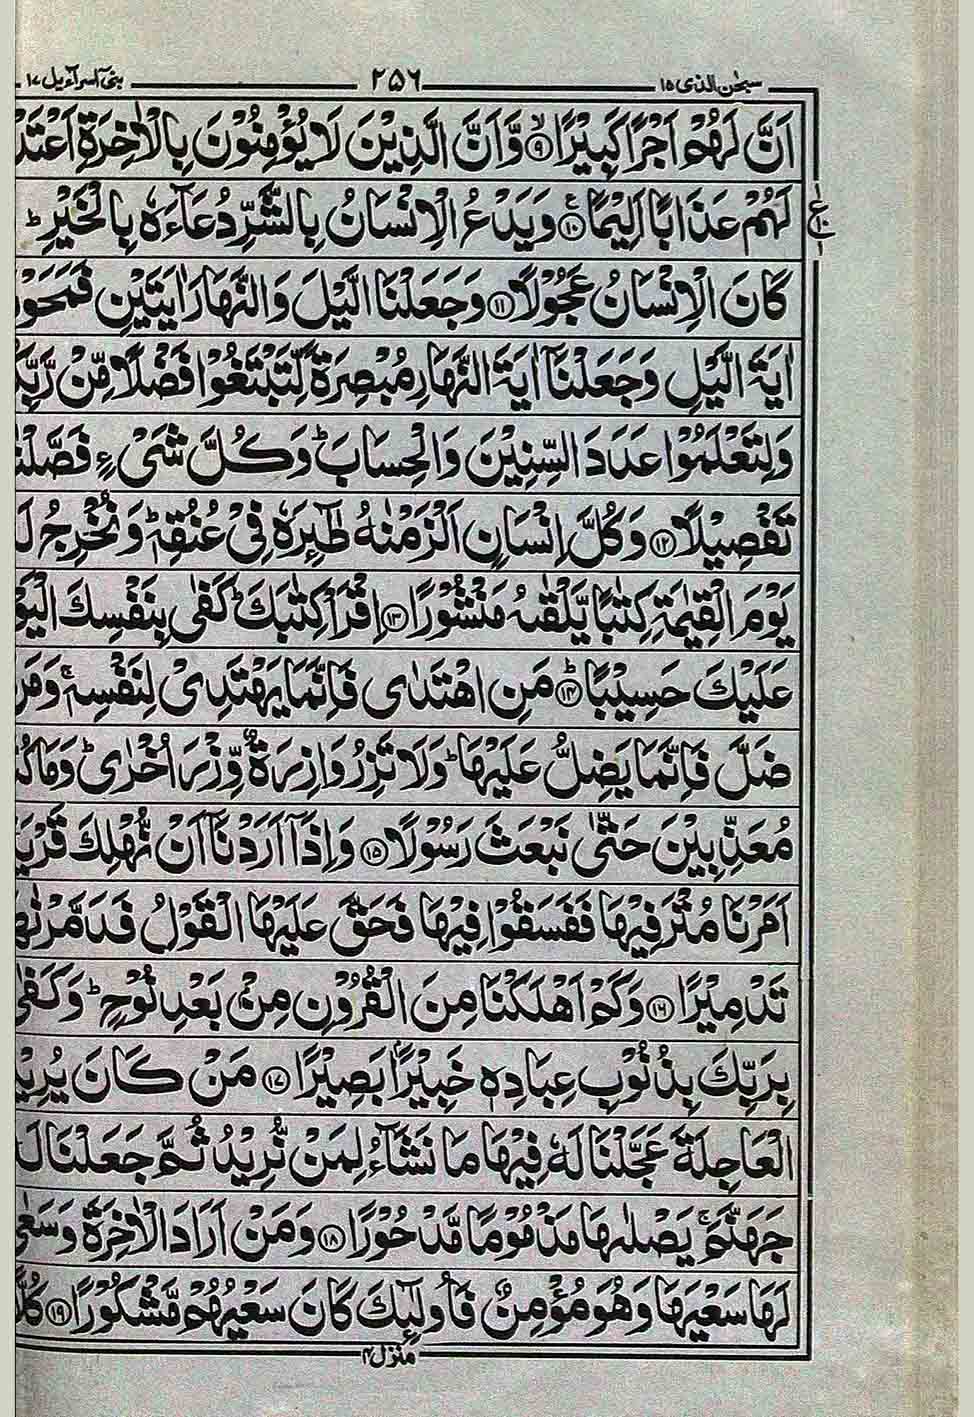 سبحٰن الذی ۱۵ ۲۵۶ بنی اسرآءیل ۱۷
اَنَّ لَهُمْ اَجْرًا كَبِیْرًا ۙ﴿۹﴾ وَّاَنَّ الَّذِیْنَ لَا یُؤْمِنُوْنَ بِالْاٰخِرَةِ
لَهُمْ عَذَابًا اَلِیْمًا ﴿۱۰﴾ع وَیَدْعُ الْاِنْسَانُ بِالشَّرِّ دُعَآءَهٗ بِالْخَیْرِ ؕ
كَانَ الْاِنْسَانُ عَجُوْلًا ﴿۱۱﴾ وَجَعَلْنَا الَّیْلَ وَالنَّهَارَ اٰیَتَیْنِ
اٰیَةَ الَّیْلِ وَجَعَلْنَاۤ اٰیَةَ النَّهَارِ مُبْصِرَةً لِّتَبْتَغُوْا فَضْلًا مِّنْ
وَلِتَعْلَمُوْا عَدَدَ السِّنِیْنَ وَالْحِسَابَ ؕ وَكُلَّ شَیْءٍ
تَفْصِیْلًا ﴿۱۲﴾ وَكُلَّ اِنْسَانٍ اَلْزَمْنٰهُ طٰٓئِرَهٗ فِیْ عُنُقِهٖ ؕ وَنُخْرِجُ
یَوْمَ الْقِیٰمَةِ كِتٰبًا یَّلْقٰىهُ مَنْشُوْرًا ﴿۱۳﴾ اِقْرَاْ كِتٰبَكَ ؕ كَفٰی بِنَفْسِكَ
عَلَیْكَ حَسِیْبًا ؕ﴿۱۴﴾ مَنِ اهْتَدٰی فَاِنَّمَا یَهْتَدِیْ لِنَفْسِهٖ ۚ
ضَلَّ فَاِنَّمَا یَضِلُّ عَلَیْهَا ؕ وَلَا تَزِرُ وَازِرَةٌ وِّزْرَ اُخْرٰی ؕ
مُعَذِّبِیْنَ حَتّٰی نَبْعَثَ رَسُوْلًا ﴿۱۵﴾ وَاِذَاۤ اَرَدْنَاۤ اَنْ نُّهْلِكَ
اَمَرْنَا مُتْرَفِیْهَا فَفَسَقُوْا فِیْهَا فَحَقَّ عَلَیْهَا الْقَوْلُ
تَدْمِیْرًا ﴿۱۶﴾ وَكَمْ اَهْلَكْنَا مِنَ الْقُرُوْنِ مِنْۢ بَعْدِ نُوْحٍ ؕ وَكَفٰی
بِرَبِّكَ بِذُنُوْبِ عِبَادِهٖ خَبِیْرًۢا بَصِیْرًا ﴿۱۷﴾ مَنْ كَانَ یُرِیْدُ
الْعَاجِلَةَ عَجَّلْنَا لَهٗ فِیْهَا مَا نَشَآءُ لِمَنْ نُّرِیْدُ ثُمَّ جَعَلْنَا
جَهَنَّمَ ۚ یَصْلٰىهَا مَذْمُوْمًا مَّدْحُوْرًا ﴿۱۸﴾ وَمَنْ اَرَادَ الْاٰخِرَةَ وَسَعٰی
لَهَا سَعْیَهَا وَهُوَ مُؤْمِنٌ فَاُولٰٓئِكَ كَانَ سَعْیُهُمْ مَّشْكُوْرًا ﴿۱۹﴾ كُلًّا
منزل ۴